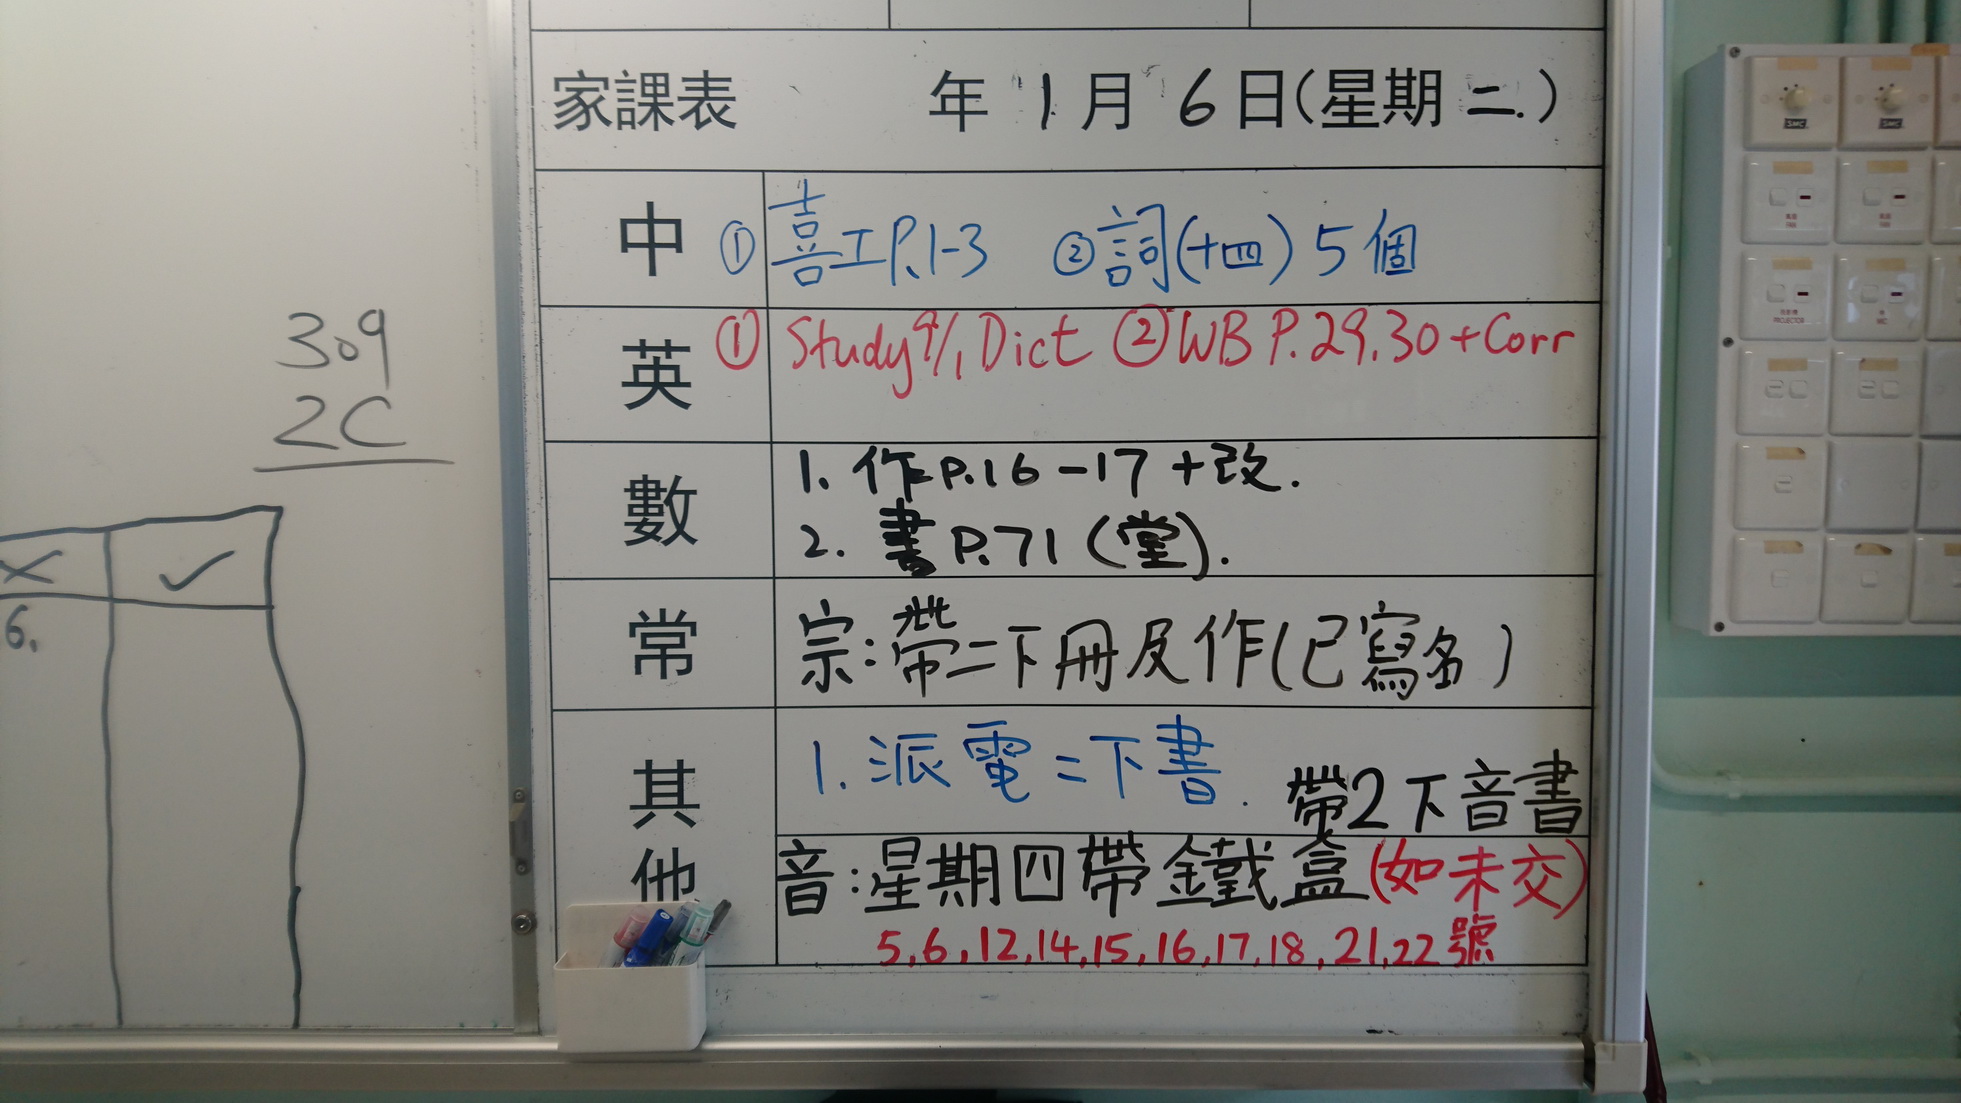 309
2C
✓
6.
家課表 年 1 月 6 日(星期 二.)
中 ① 喜工P.1-3 ② 詞(十四) 5個
英 ① Study 9/1 Dict ② WB P.29.30 + Corr
數 1. 作P.16-17 +改.
2. 書P.71 (堂).
常 宗:帶二下冊及作(已寫名)
其他 1. 派電二下書.
帶2下音書
音:星期四帶鐵盒(如未交)
5,6,12,14,15,16,17,18,21,22號